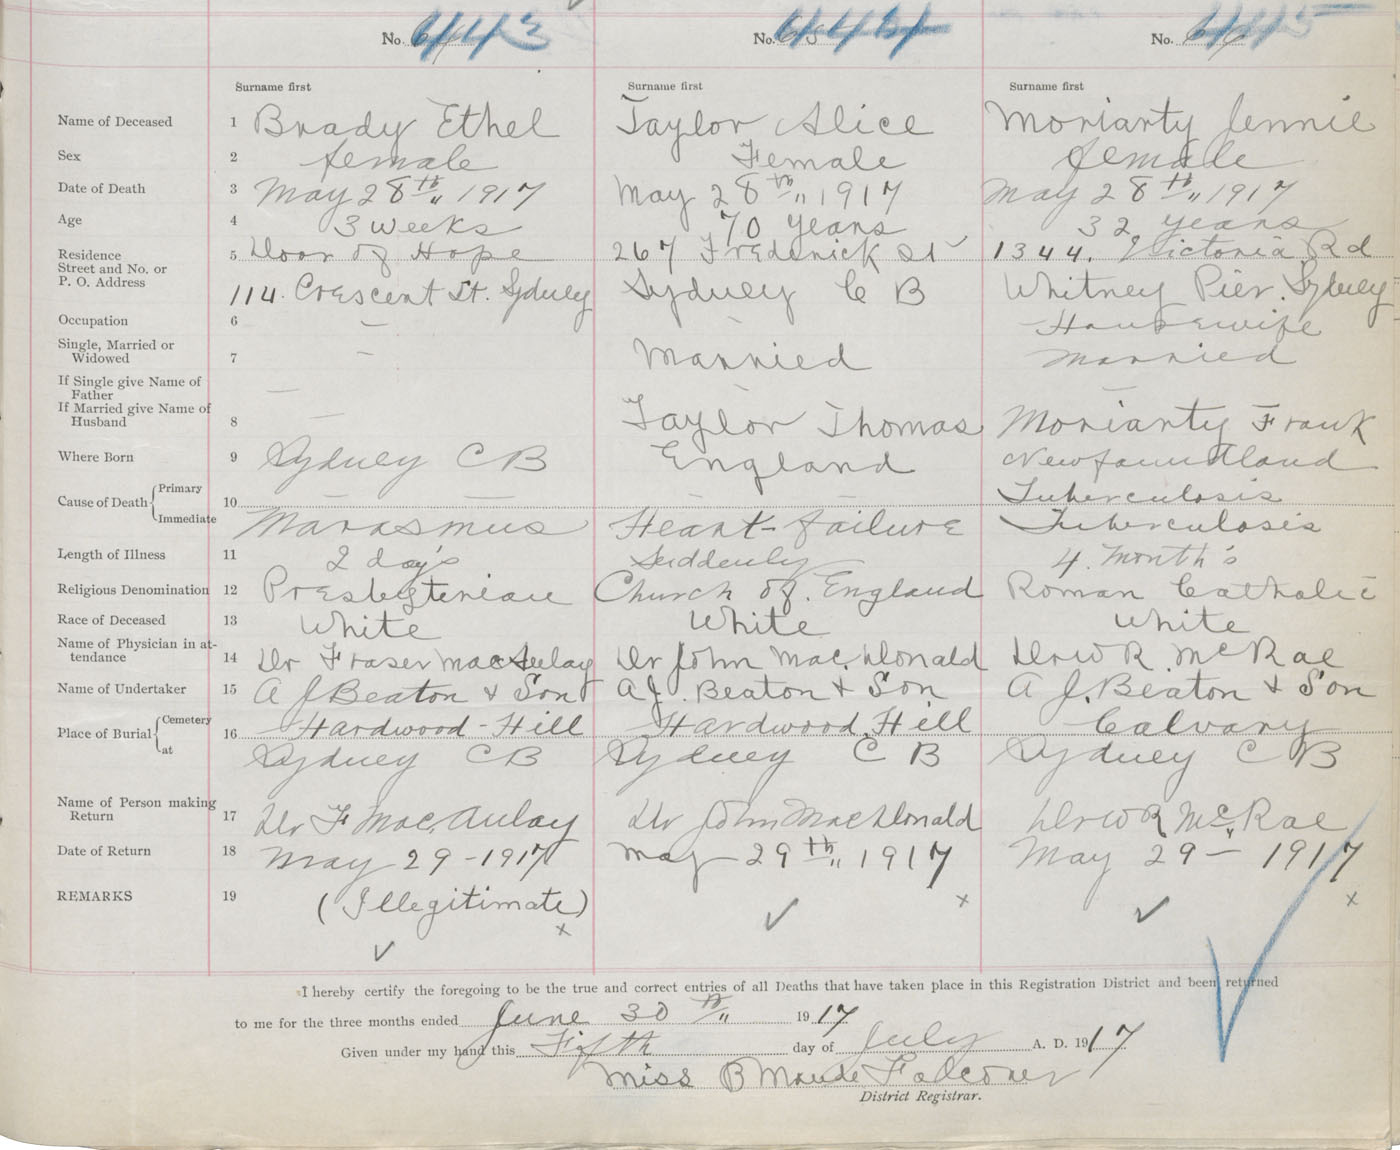 No. 443 No. 444 No. 445
Surname first Surname first Surname first
Name of Deceased 1 Brady Ethel Taylor Alice Moriarty Jennie
Sex 2 female Female female
Date of Death 3 May 28th,, 1917 May 28th,, 1917 May 28th,, 1917
Age 4 3 weeks 70 years 32 years
Residence 5 Door of Hope 267 Frederick St 1344. Victoria Rd
Street and No. or
P. O. Address 114. Crescent St. Sydney Sydney C B Whitney Pier. Sydney
Occupation 6 — Housewife
Single, Married or
Widowed 7 — Married Married
If Single give Name of
Father — — —
If Married give Name of
Husband 8 — Taylor Thomas Moriarty Frank
Where Born 9 Sydney C B England Newfoundland
Cause of Death { Primary 10 — — — Tuberculosis
Immediate Marasmus Heart-failure Tuberculosis
Length of Illness 11 2 day's Suddenly 4. Month's
Religious Denomination 12 Presbyterian Church of. England Roman Catholic
Race of Deceased 13 White White White
Name of Physician in at-
tendance 14 Dr Fraser MacAulay Dr John Mac.Donald Dr W R. McRae
Name of Undertaker 15 A J Beaton & Son A J. Beaton & Son A J. Beaton & Son
Place of Burial { Cemetery 16 Hardwood-Hill Hardwood Hill Calvary
at Sydney C B Sydney C B Sydney C B
Name of Person making
Return 17 Dr F Mac.Aulay Dr John MacDonald Dr W R McRae
Date of Return 18 May 29-1917 May 29th,, 1917 May 29— 1917
REMARKS 19 (Illegitimate)
I hereby certify the foregoing to be the true and correct entries of all Deaths that have taken place in this Registration District and been returned
to me for the three months ended June 30th,, 1917
Given under my hand this Fifth day of July A. D. 1917
Miss B Maude Falconer
District Registrar.